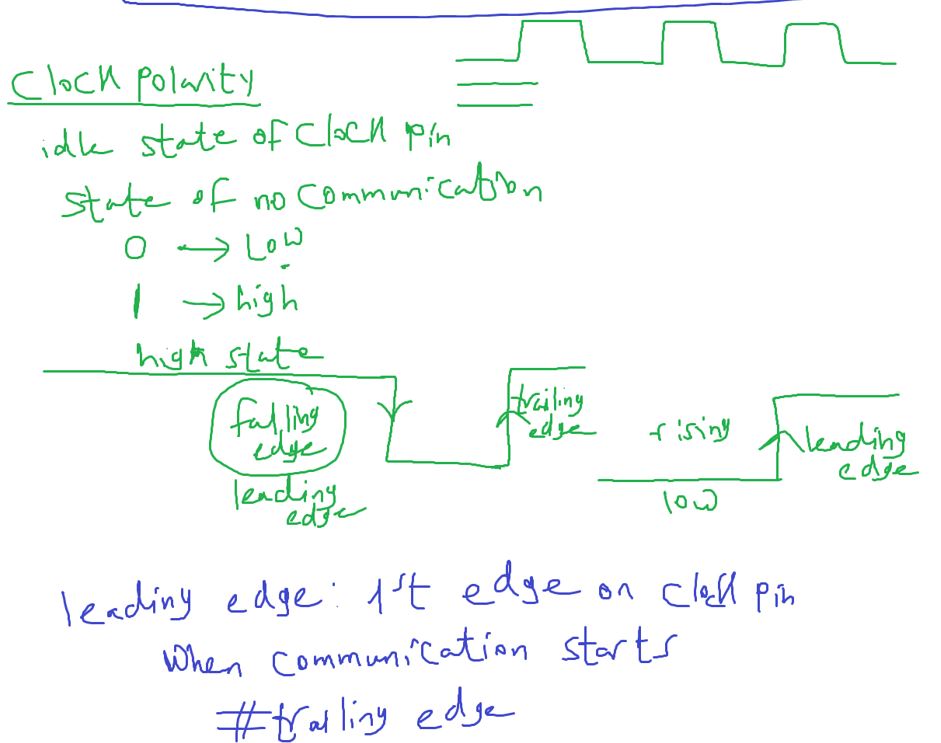 Clock Polarity
idle state of Clock pin
state of no Communication
0 → Low
1 → high
high state
falling
edge
leading
edge
trailing
edge
rising
low
leading
edge
leading edge: 1st edge on Clock pin
When communication starts
# trailing edge